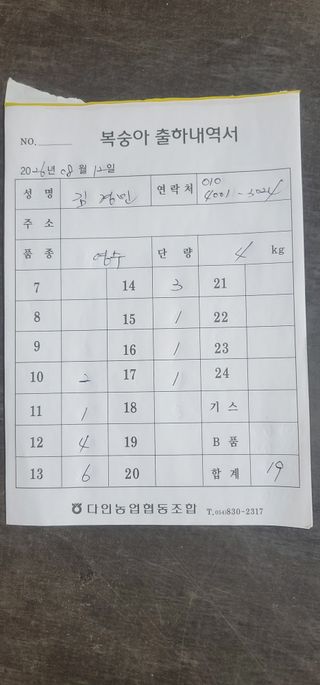 NO.
복숭아 출하내역서
2026년 08월 12일
성 명 김정민 연락처 010 4001-3024
주 소
품 종 영수 단 량 4 kg
7 14 3 21
8 15 1 22
9 16 1 23
10 2 17 1 24
11 1 18 기 스
12 4 19 B 품
13 6 20 합 계 19
다인농업협동조합 T.(054)830-2317